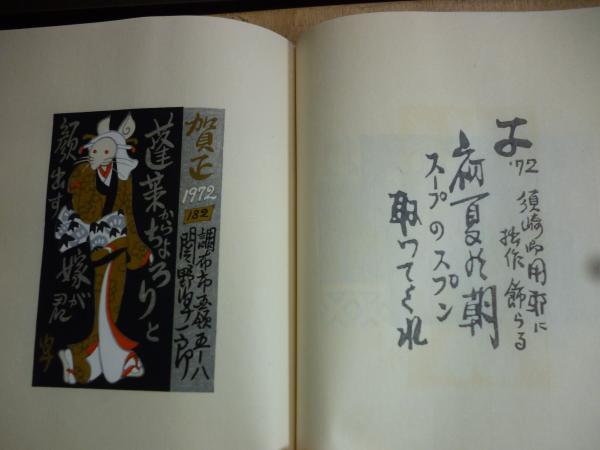 '72 須崎御用邸に
拙作 飾らる
夏の朝
スープのスプン
取ってくれ
賀正
1972
182
調布市 五-八
関野準一郎
蓬莱からちょろりと
顔出す 嫁が君